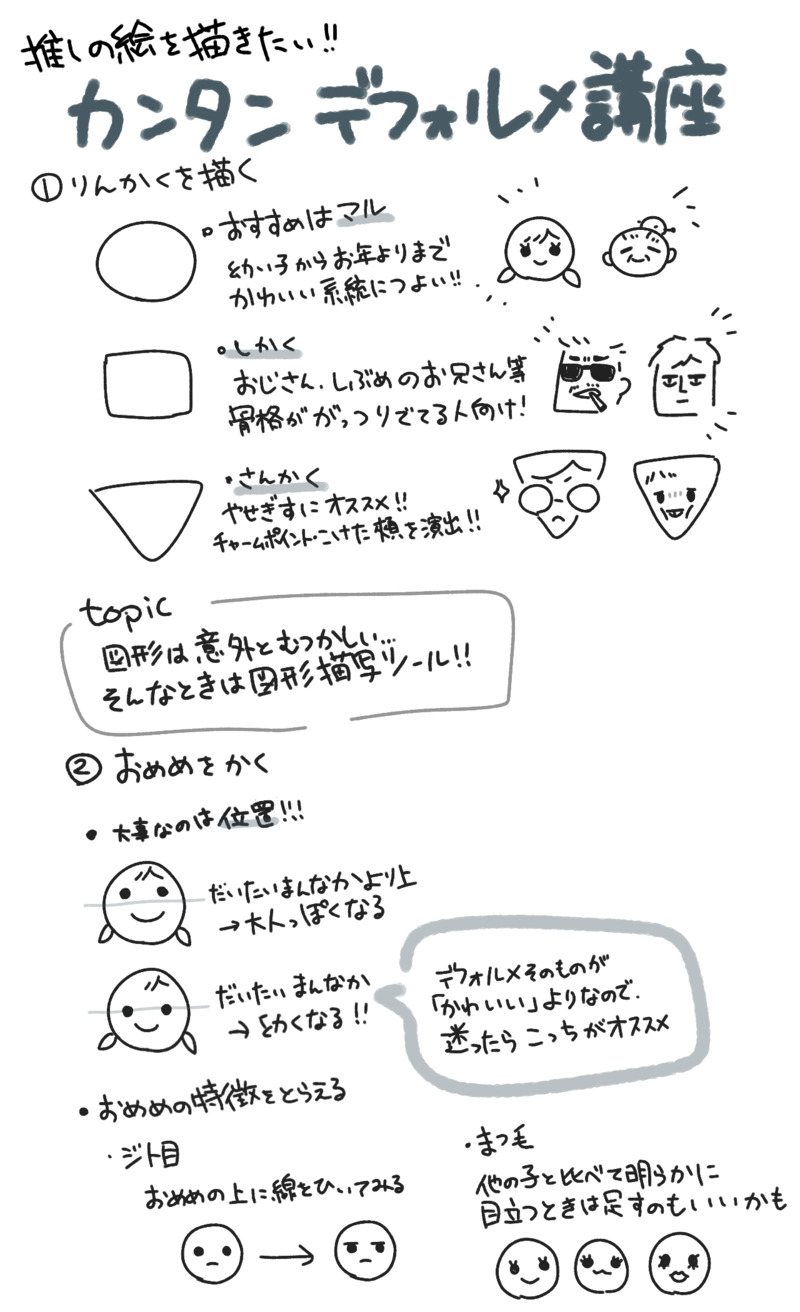 推しの絵を描きたい!!
カンタン デフォルメ講座
① りんかくを描く
おすすめはマル
幼い子からお年よりまで
かわいい系統につよい!!
しかく
おじさん、しぶめのお兄さん等
骨格ががっつりでてる人向け!
さんかく
やせぎすにオススメ!!
チャームポイント・こけた頬を演出!!
topic
図形は意外とむつかしい...
そんなときは図形描写ツール!!
② おめめをかく
・大事なのは位置!!!
だいたいまんなかより上
→大人っぽくなる
だいたいまんなか
→幼くなる!!
デフォルメそのものが
「かわいい」よりなので、
迷ったらこっちがオススメ
・おめめの特徴をとらえる
・ジト目
おめめの上に線をひいてみる
・まつ毛
他の子と比べて明らかに
目立つときは足すのもいいかも